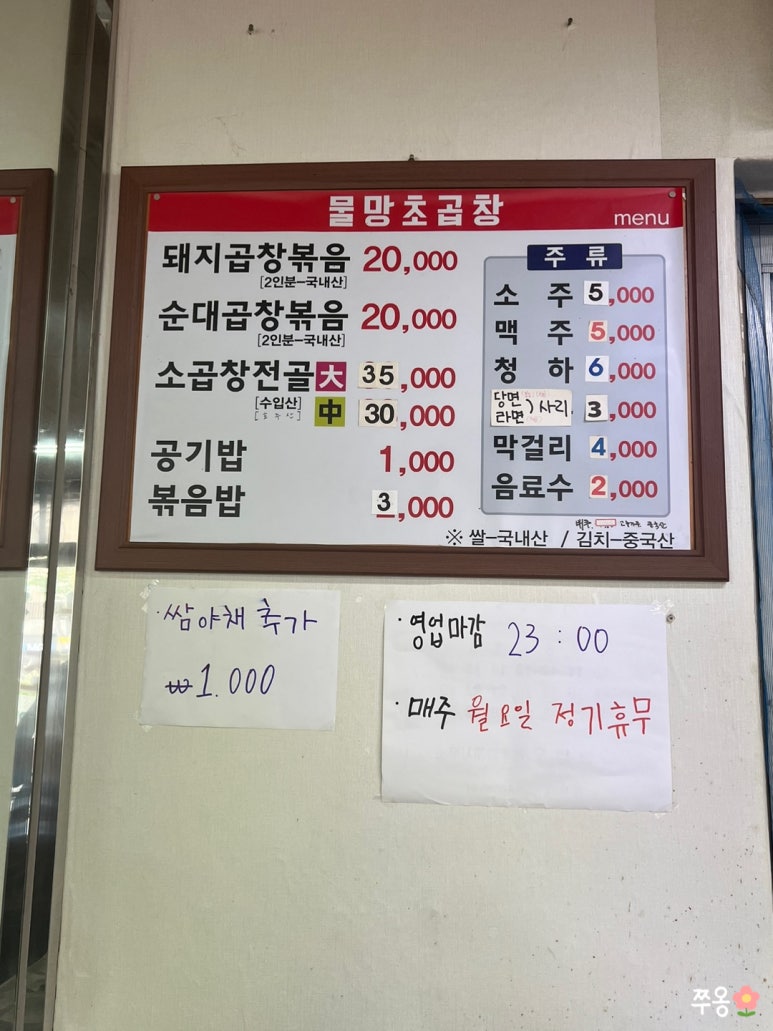 물망초곱창
menu
돼지곱창볶음 20,000
[2인분-국내산]
순대곱창볶음 20,000
[2인분-국내산]
소곱창전골 大 35,000
[수입산] 中 30,000
공기밥 1,000
볶음밥 3,000
주류
소주 5,000
맥주 5,000
청하 6,000
당면
라면 ) 사리. 3,000
막걸리 4,000
음료수 2,000
※ 쌀-국내산 / 김치-중국산
· 쌈야채 추가
₩1.000
· 영업마감 23:00
· 매주 월요일 정기휴무
쭈옹